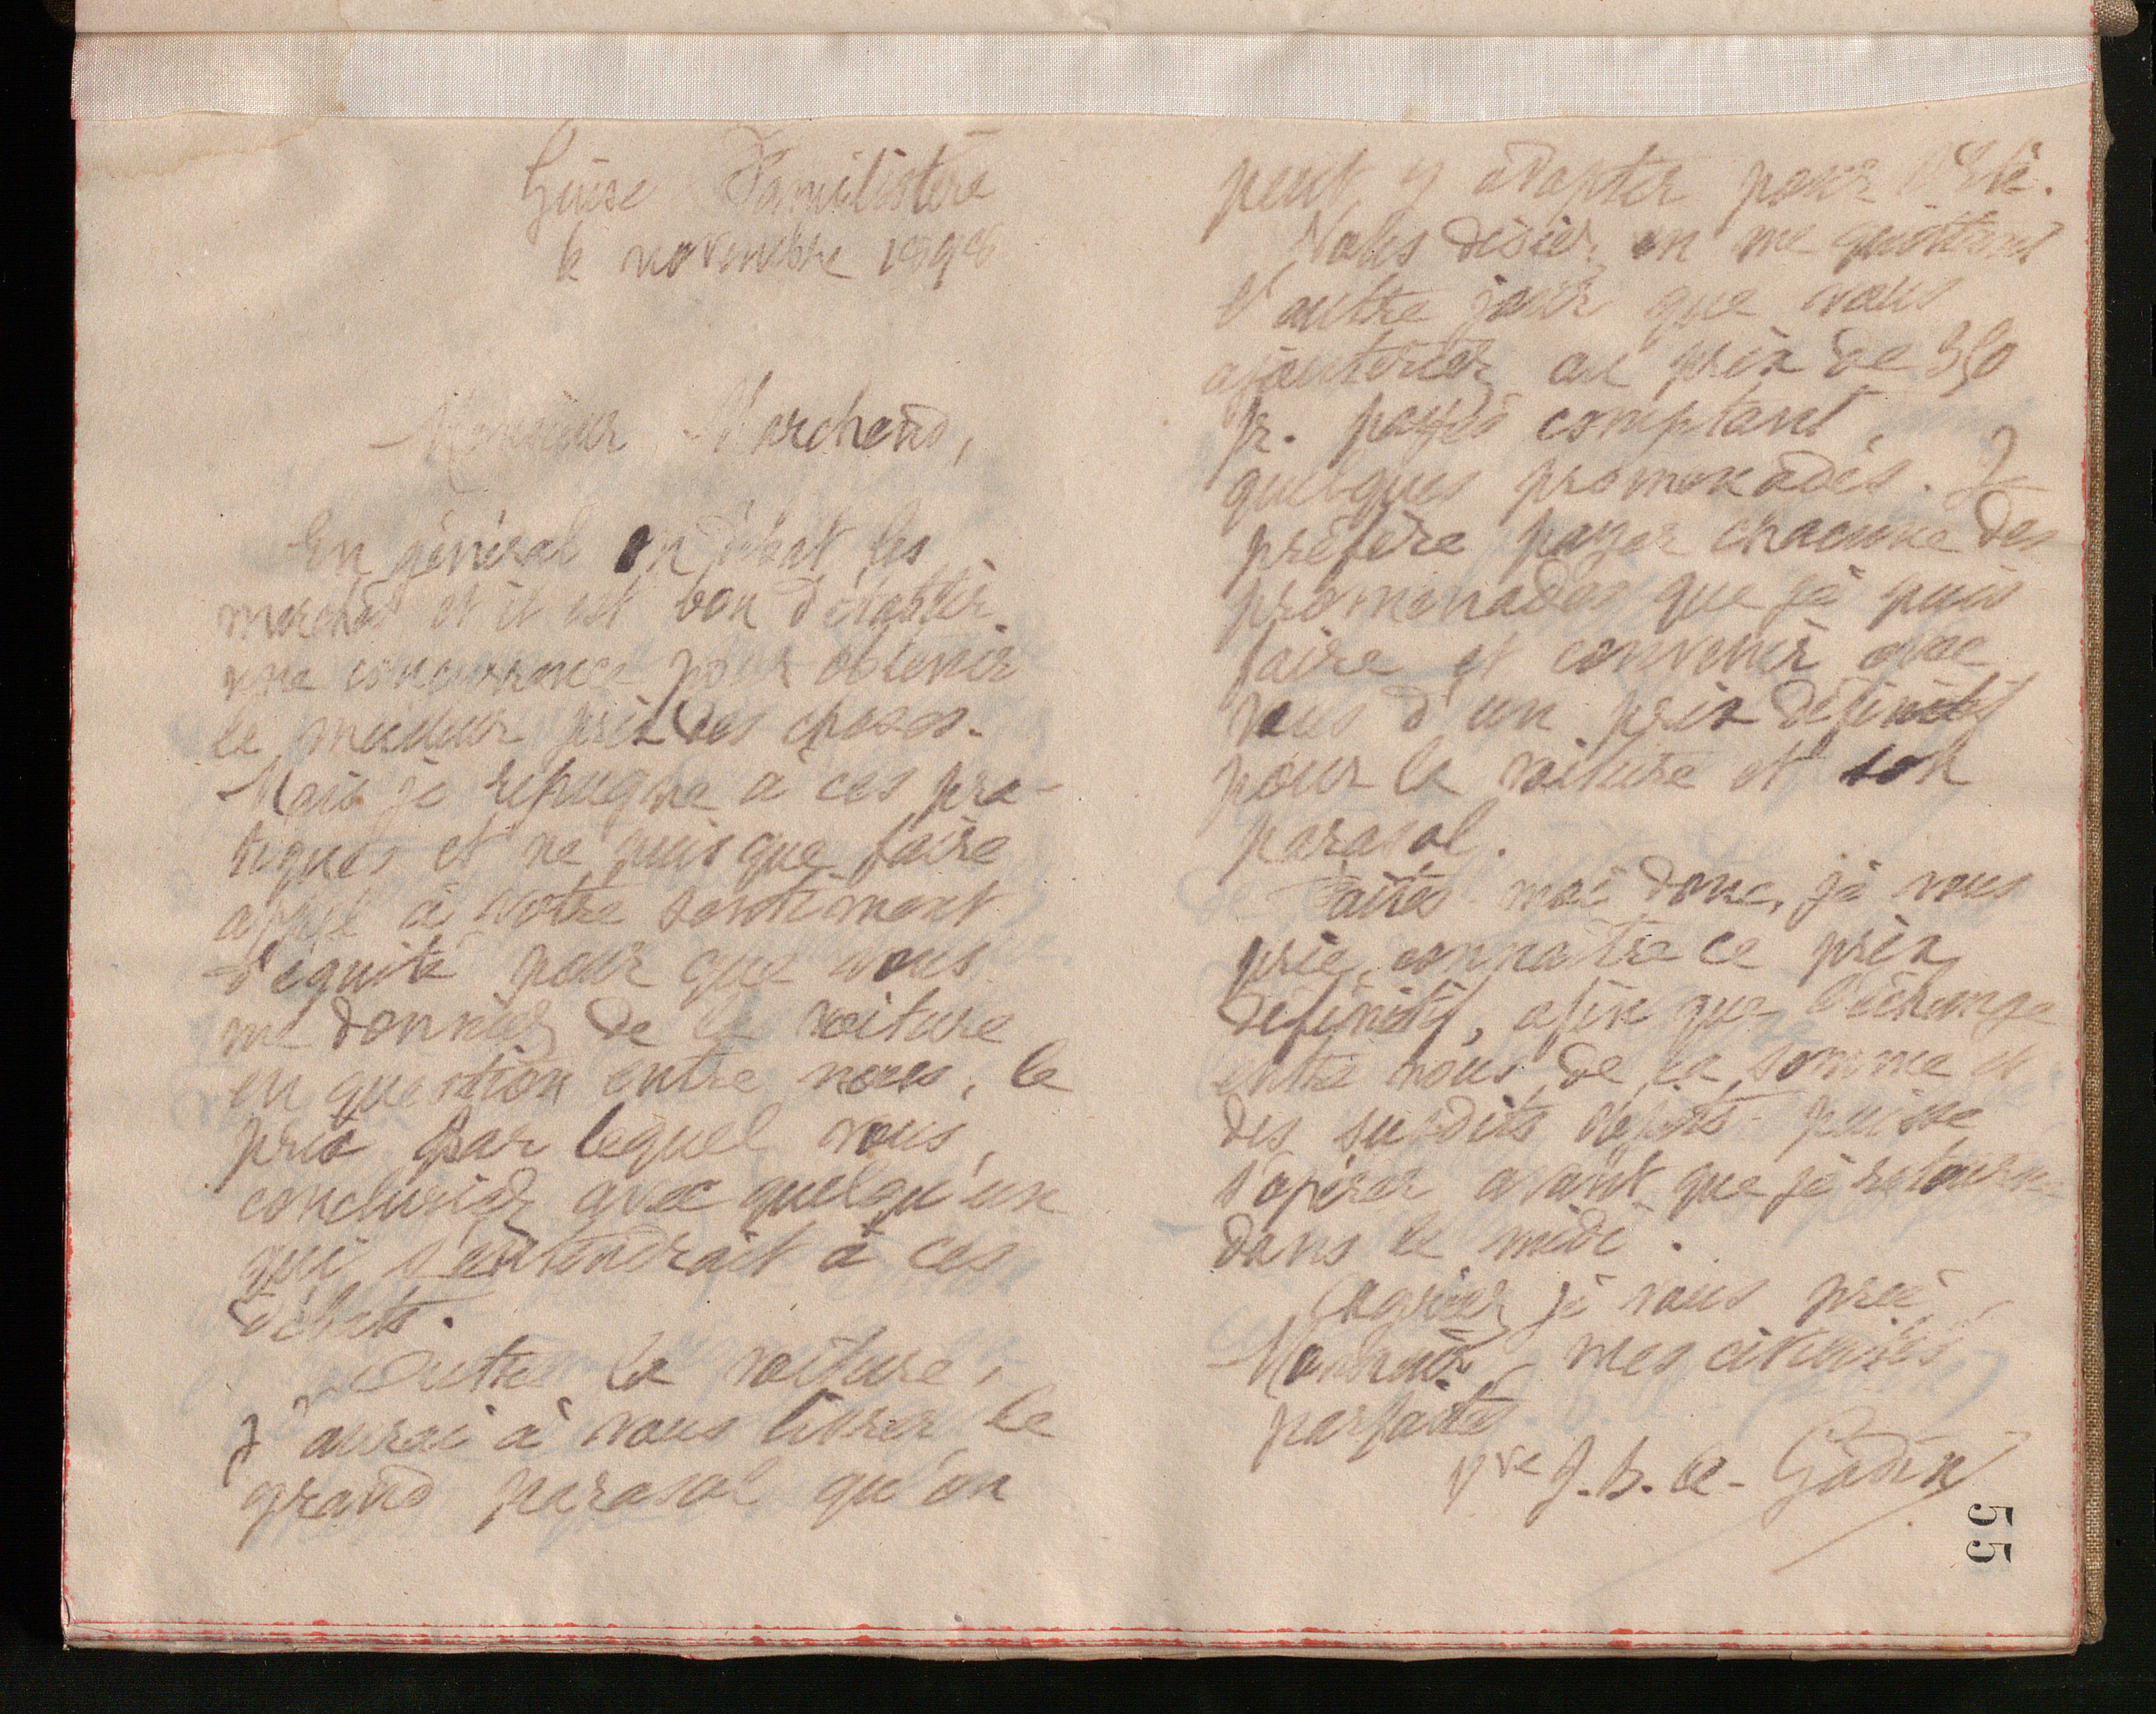 Guise Familistère
6 novembre 1898
Monsieur Marchand,
En général on débat les
marchés et il est bon d'établir
une concurrence pour obtenir
le meilleur prix des choses.
Mais je répugne à ces pra-
tiques et ne puis que faire
appel à votre sentiment
d'équité pour que vous
me donniez de la voiture
en question entre nous, le
prix par lequel vous
concluriez avec quelqu'un
qui s'entendrait à ces
débats.
Outre la voiture,
j'aurai à vous livrer le
grand parasol qu'on
peut y adapter pour l'été.
Vous disiez en me quittant
l'autre jour que vous
ajouteriez au prix de 350
fr. payés comptant,
quelques promenades. Je
préfère payer chacune des
promenades que je puis
faire et convenir avec
vous d'un prix définitif
pour la voiture et son
parasol.
Faites moi donc, je vous
prie, connaître ce prix
définitif, afin que l'échange
entre nous de la somme et
des susdits objets puisse
s'opérer avant que je retourne
dans le midi.
Agréez je vous prie,
Monsieur, mes civilités
parfaites
Vve J. B. A. Godin
55